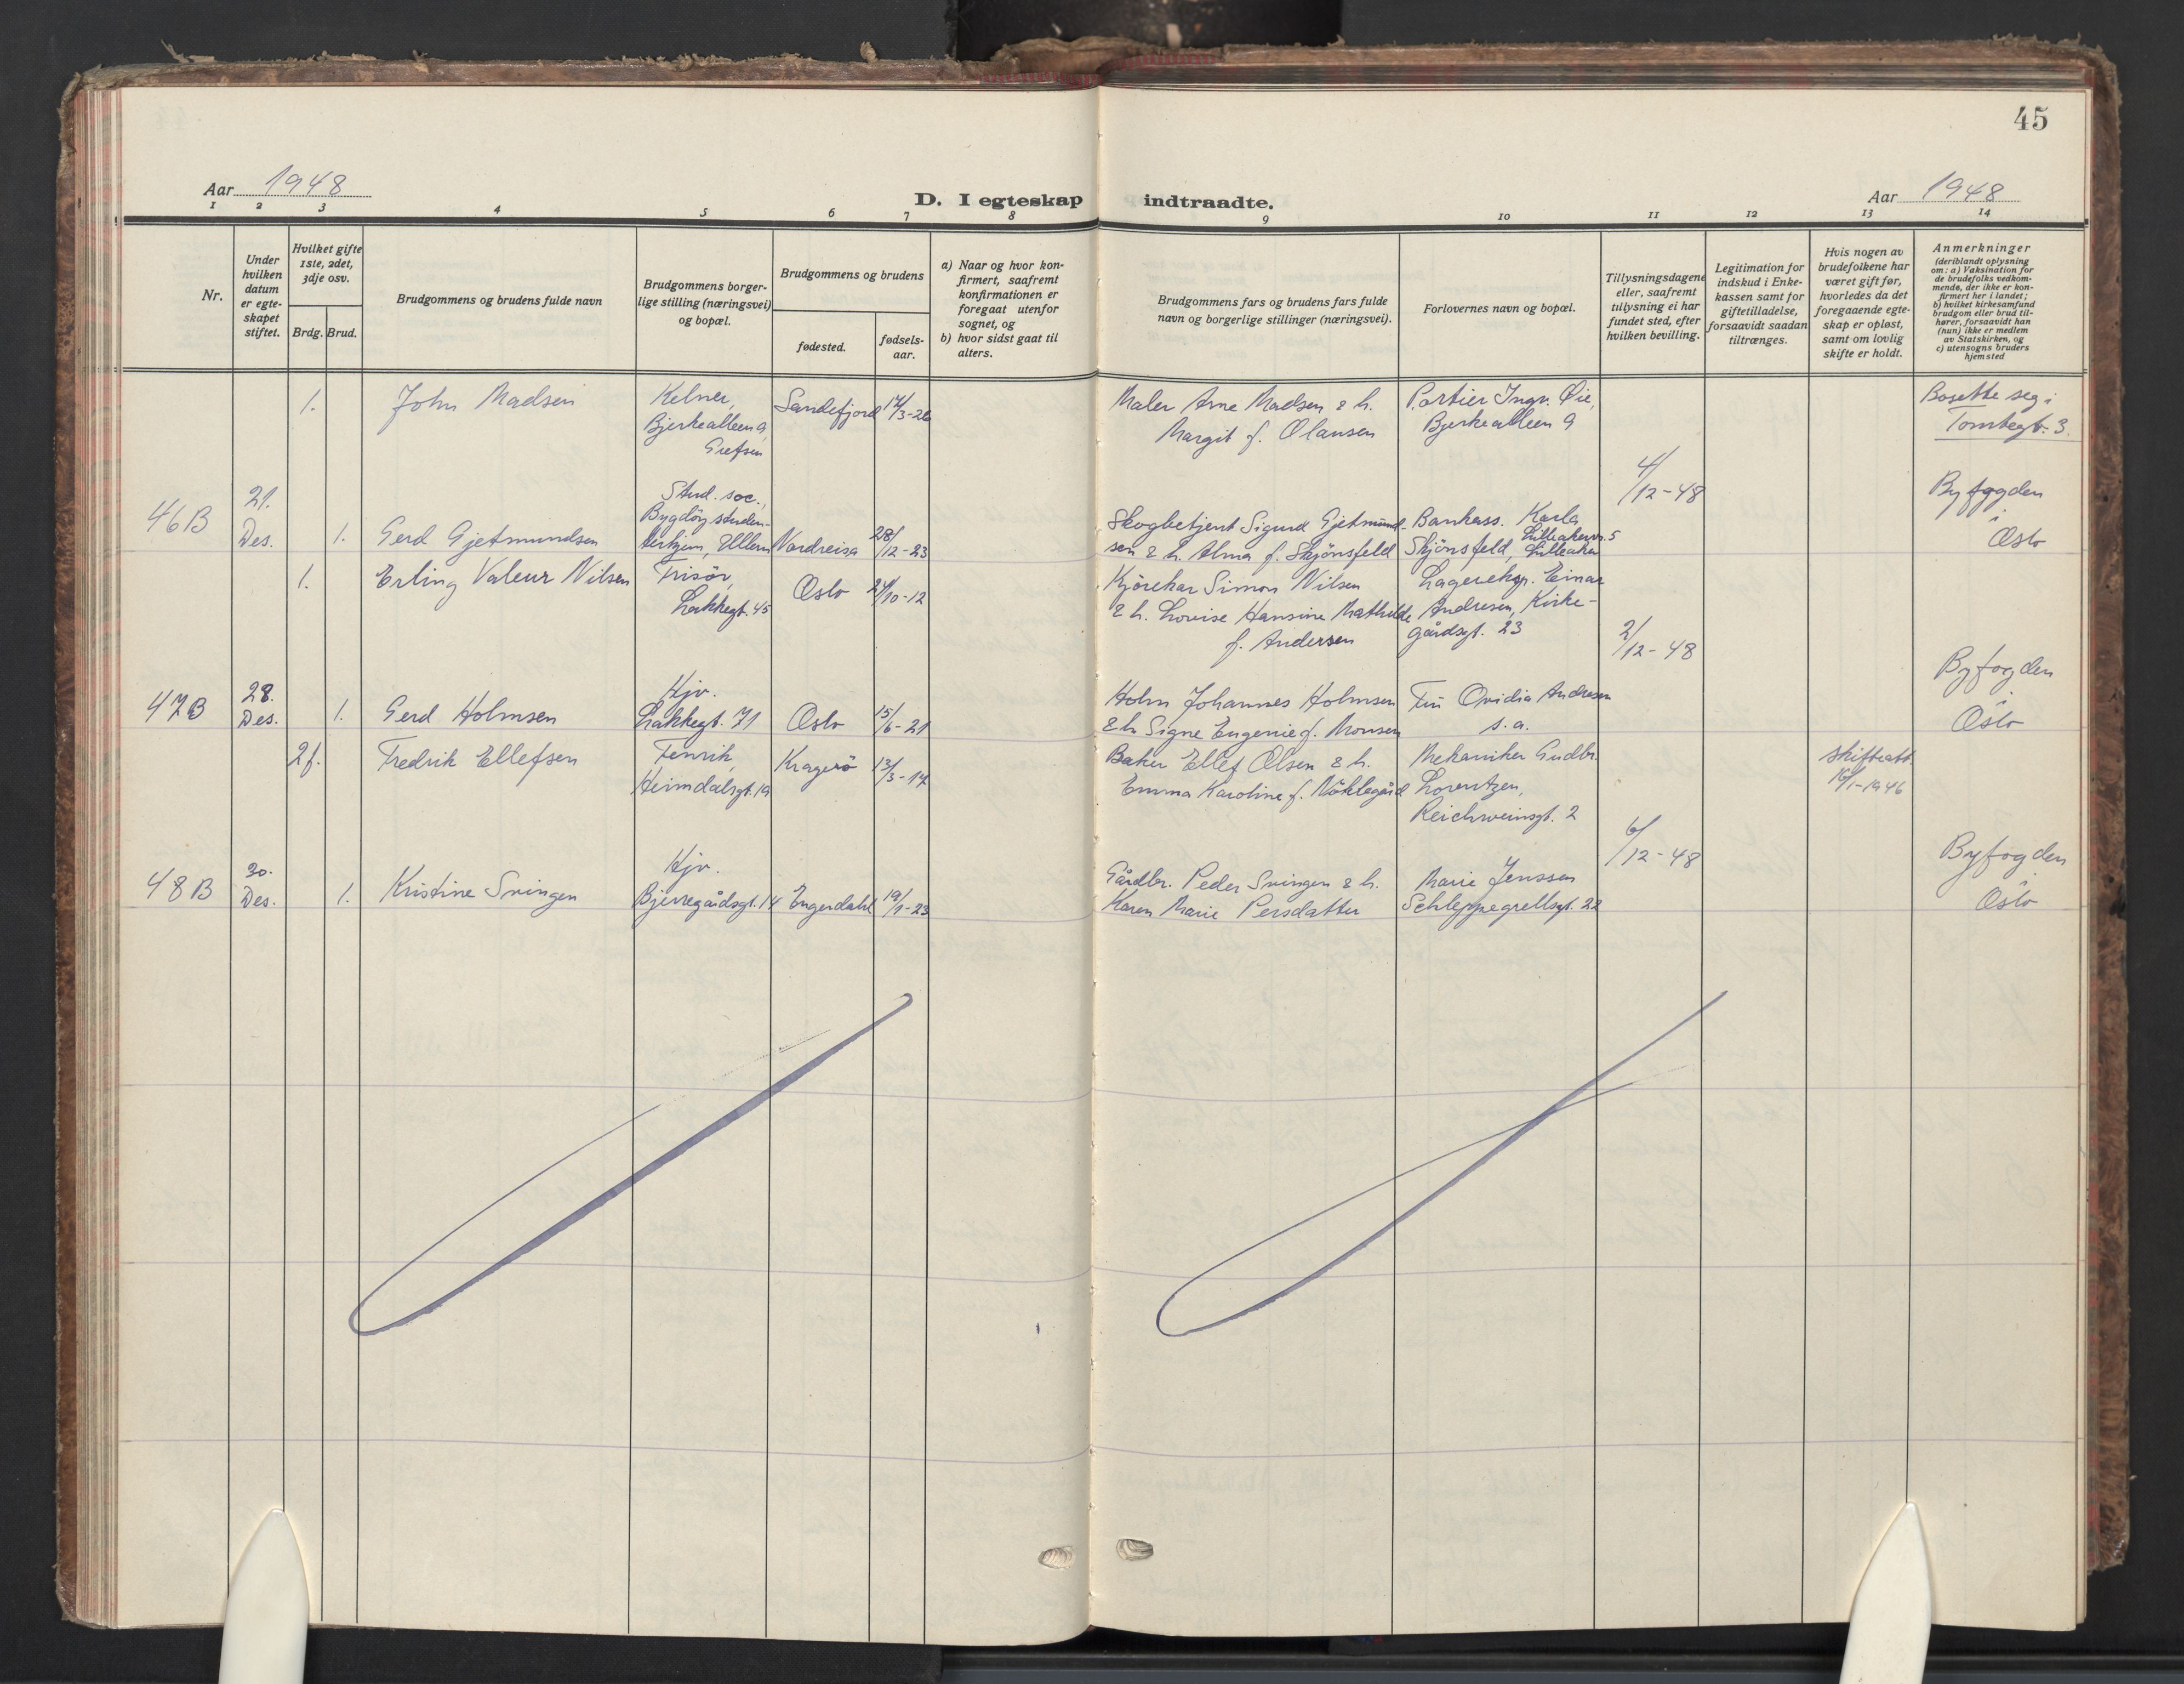 45
Aar 1948
D. I egteskap indtraadte.
Aar 1948
1 2 3 4 5 6 7 8 9 10 11 12 13 14
Nr.
Under
hvilken
datum
er egte-
skapet
stiftet.
Hvilket gifte
1ste, 2det,
3dje osv.
Brdg. Brud.
Brudgommens og brudens fulde navn
Brudgommens borger-
lige stilling (næringsvei)
og bopæl.
Brudgommens og brudens
fødested.
fødsels-
aar.
a) Naar og hvor kon-
firmert, saafremt
konfirmationen er
foregaat utenfor
sognet, og
b) hvor sidst gaat til
alters.
Brudgommens fars og brudens fars fulde
navn og borgerlige stillinger (næringsvei).
Forlovernes navn og bopæl.
Tillysningsdagene
eller, saafremt
tillysning ei har
fundet sted, efter
hvilken bevilling.
Legitimation for
indskud i Enke-
kassen samt for
giftetilladelse,
forsaavidt saadan
tiltrænges.
Hvis nogen av
brudefolkene har
været gift før,
hvorledes da det
foregaaende egte-
skap er opløst,
samt om lovlig
skifte er holdt.
Anmerkninger
(deriblandt oplysning
om: a) Vaksination for
de brudefolks vedkom-
mende, der ikke er kon-
firmert her i landet;
b) hvilket kirkesamfund
brudgom eller brud til-
hører, forsaavidt han
(hun) ikke er medlem
av Statskirken, og
c) utensogns bruders
hjemsted
1.
John Madsen
Kelner,
Bjerkealleen 9,
Grefsen
Sandefjord
14/3-26
Maler Arne Madsen & h.
Margit f. Olausen
Portier Ingv. Øie,
Bjerkealleen 9
Bosette seg i
Tomtegt. 3.
46B
21.
Des.
1.
Gerd Gjetmundsen
Stud. soc.,
Bygdöy studen-
terhjem, Ullern
Nordreisa
28/12-23
Skogbetjent Sigurd Gjetmund-
sen & h. Alma f. Skjönsfeld
Bankass. Karla
Skjönsfeld, Lilleakervn. 5
Lilleaker
4/12-48
Byfogden
i
Oslo
1.
Erling Valeur Nilsen
Frisör,
Lakkegt. 45
Oslo
24/10-12
Kjörekar Simon Nilsen
& h. Lovise Hansine Mathilde
f. Andersen
Lagereksp. Einar
Andresen, Kirke-
gårdsgt. 23
2/12-48
47B
28.
Des.
1.
Gerd Holmsen
Hjv.
Lakkegt. 71
Oslo
15/6-21
Holm Johannes Holmsen
& h. Signe Eugenie f. Monsen
Fru Ovidia Andresen
s. a.
Byfogden
i
Oslo
2f.
Fredrik Ellefsen
Fenrik,
Heimdalsgt. 19
Kragerö
13/3-14
Baker Ellef Olsen & h.
Emma Karoline f. Nöklegård
Mekaniker Gudbr.
Lorentzen,
Reichweinsgt. 2
skifteatt
16/1-1946
6/12-48
48B
30.
Des.
1.
Kristine Svingen
Hjv.
Bjerregårdsgt. 14
Engerdahl
19/1-23
Gårdbr. Peder Svingen & h.
Karen Marie Persdatter
Marie Jenssen
Schleppegrellsgt. 22
Byfogden
i
Oslo